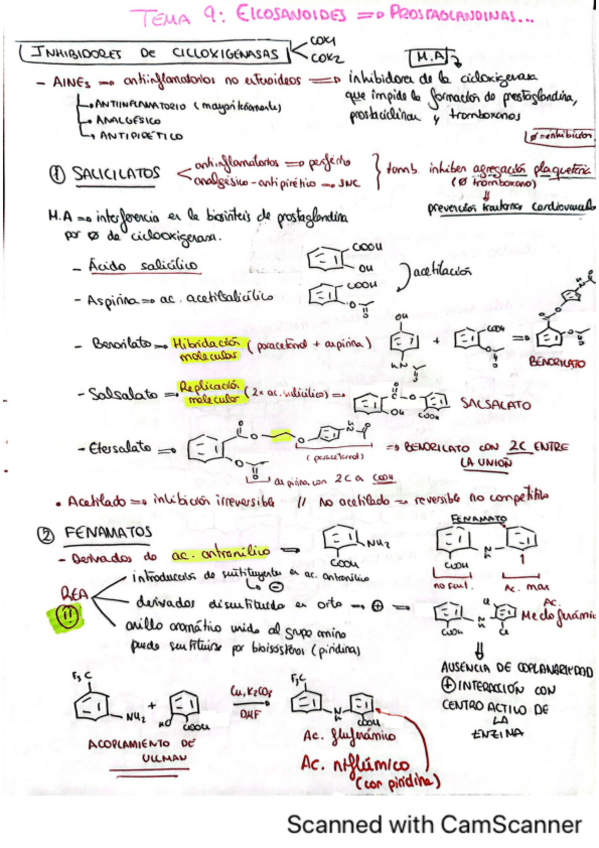 TEMA 9: EICOSANOIDES => PROSTAGLANDINAS...
INHIBIDORES DE CICLOXIGENASAS
COX1
COX2
M.A
- AINEs => antiinflamatorios no esteroideos => inhibidores de la cicloxigenasa
que impide la formación de prostaglandina,
prostaciclinas y tromboxanos
ANTIINFLAMATORIO (mayoritariamente)
ANALGÉSICO
ANTIPIRÉTICO
Ø = inhibición
① SALICILATOS
antiinflamatorios => periferia
analgésico-antipirético => SNC
tamb. inhiben agregación plaquetaria
(Ø tromboxano)
prevención trastornos cardiovascula
M.A => interferencia en la biosíntesis de prostaglandina
por Ø de cicloxigenasa.
- Ácido salicílico
COOH
OH
acetilación
- Aspirina => ac. acetilsalicílico
COOH
- Benorilato => Hibridación molecular (paracetamol + aspirina)
OH
HN
+
COOH
BENORILATO
- Salsalato => Replicación molecular (2x ac. salicílico) =>
OH
COOH
SALSALATO
- Etersalato =>
(paracetamol)
aspirina con 2C a COOH
=> BENORILATO CON 2C ENTRE
LA UNIÓN
• Acetilado => inhibición irreversible // No acetilado - reversible no competitiva
② FENAMATOS
- Derivados de ac. antranílico
NH2
COOH
FENAMATO
COOH
N
H
1
no sust.
Ac. mas
REA
!!
introducción de sustituyentes en ac. antranílico
⊖
derivados disustituido en orto → ⊕ =>
anillo aromático unido al grupo amino
puede sustituirse por bioisósteros (piridina)
Cl
COOH
Cl
Ac.
Meclofenámi
AUSENCIA DE COPLANARIEDAD
⊕ INTERACCIÓN CON
CENTRO ACTIVO DE
LA
ENZIMA
F3C
NH2
+
HO
COOH
Cu, K2CO3
DMF
F3C
N
H
COOH
ACOPLAMIENTO DE
ULLMAN
Ac. flufenámico
Ac. niflúmico
(con piridina)
Scanned with CamScanner